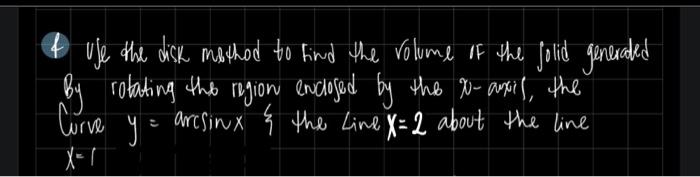 f Use the disk method to find the volume of the solid generated
By rotating the region enclosed by the x-axis, the
Curve y = arcsinx & the Line x=2 about the line
x=1